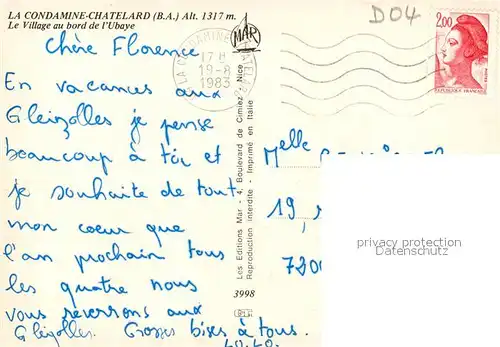 LA CONDAMINE-CHATELARD (B.A.) Alt. 1317 m.
Le Village au bord de l'Ubaye
D04
MAR
LA CONDAMINE CHATELARD
17 H
19-8
1983
2,00
REPUBLIQUE FRANÇAISE
Chère Florence
En vacances aux
Gleizolles je pense
beaucoup à toi et
je souhaite de tout
mon coeur que
l'an prochain tous
les quatre nous
vous reverrons aux
Gleizolles. Grosses bises à tous.
Les Editions Mar - 4, Boulevard de Cimiez - Nice
Reproduction interdite - Imprimé en Italie
3998
Melle
19,
privacy protection